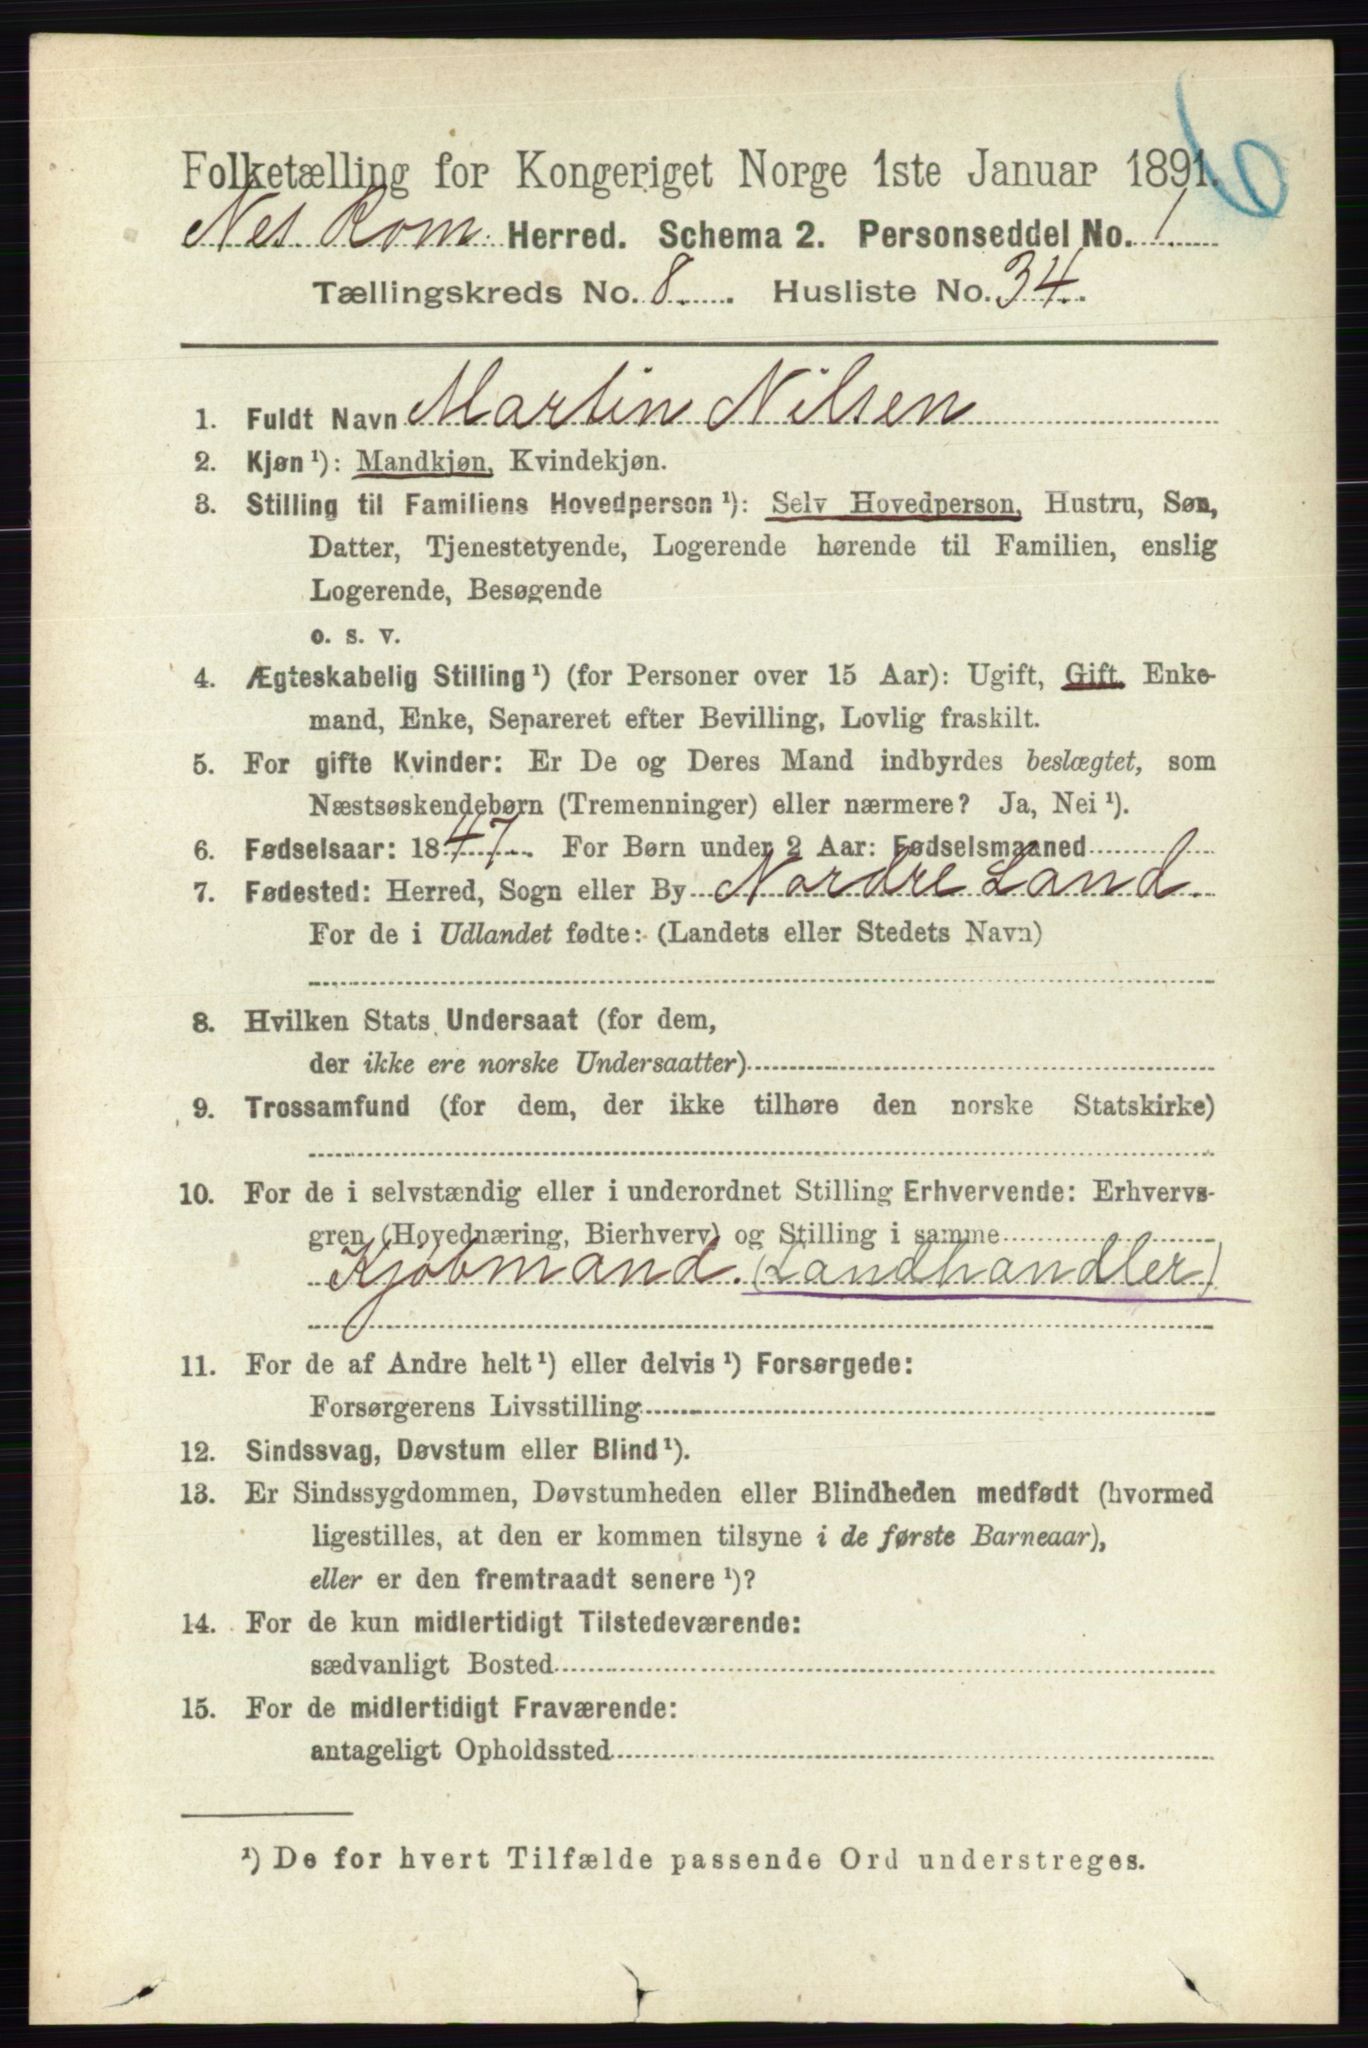 6
Folketælling for Kongeriget Norge 1ste Januar 1891.
Nes Rom. Herred. Schema 2. Personseddel No. 1.
Tællingskreds No. 8. Husliste No. 34.
1. Fuldt Navn Martin Nilsen
2. Kjøn ¹): Mandkjøn, Kvindekjøn.
3. Stilling til Familiens Hovedperson ¹): Selv Hovedperson, Hustru, Søn,
Datter, Tjenestetyende, Logerende hørende til Familien, enslig
Logerende, Besøgende
o. s. v.
4. Ægteskabelig Stilling ¹) (for Personer over 15 Aar): Ugift, Gift, Enke-
mand, Enke, Separeret efter Bevilling, Lovlig fraskilt.
5. For gifte Kvinder: Er De og Deres Mand indbyrdes beslægtet, som
Næstsøskendebørn (Tremenninger) eller nærmere? Ja, Nei ¹).
6. Fødselsaar: 1847. For Børn under 2 Aar: Fødselsmaaned
7. Fødested: Herred, Sogn eller By Nordre Land.
For de i Udlandet fødte: (Landets eller Stedets Navn)
8. Hvilken Stats Undersaat (for dem,
der ikke ere norske Undersaatter)
9. Trossamfund (for dem, der ikke tilhøre den norske Statskirke)
10. For de i selvstændig eller i underordnet Stilling Erhvervende: Erhvervs-
gren (Hovednæring, Bierhverv) og Stilling i samme
Kjøbmand. (Landhandler)
11. For de af Andre helt ¹) eller delvis ¹) Forsørgede:
Forsørgerens Livsstilling
12. Sindssvag, Døvstum eller Blind ¹).
13. Er Sindssygdommen, Døvstumheden eller Blindheden medfødt (hvormed
ligestilles, at den er kommen tilsyne i de første Barneaar),
eller er den fremtraadt senere ¹)?
14. For de kun midlertidigt Tilstedeværende:
sædvanligt Bosted
15. For de midlertidigt Fraværende:
antageligt Opholdssted
¹) De for hvert Tilfælde passende Ord understreges.